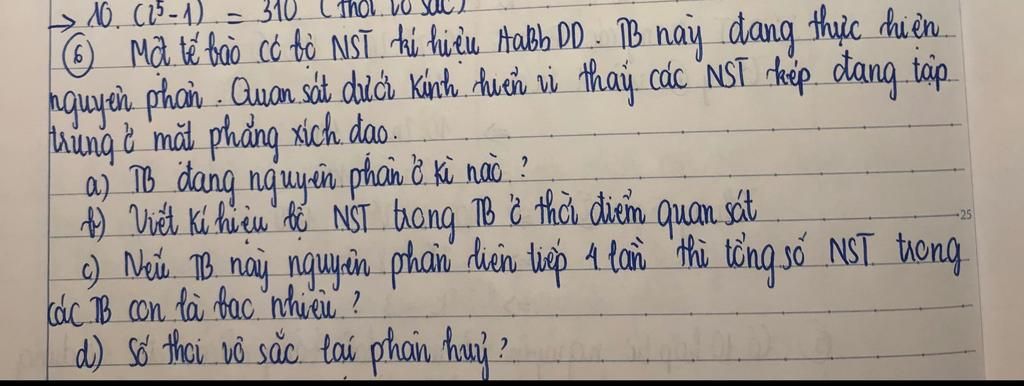 → 10. (2⁵-1) = 310 (thoi vô sắc)
⑥ Một tế bào có bộ NST kí hiệu AaBb DD. TB này đang thực hiện
nguyên phân. Quan sát dưới kính hiển vi thấy các NST kép đang tập
trung ở mặt phẳng xích đạo.
a) TB đang nguyên phân ở kì nào?
b) Viết kí hiệu bộ NST trong TB ở thời điểm quan sát
25
c) Nếu TB này nguyên phân liên tiếp 4 lần thì tổng số NST trong
các TB con là bao nhiêu?
d) Số thoi vô sắc bị phân huỷ?